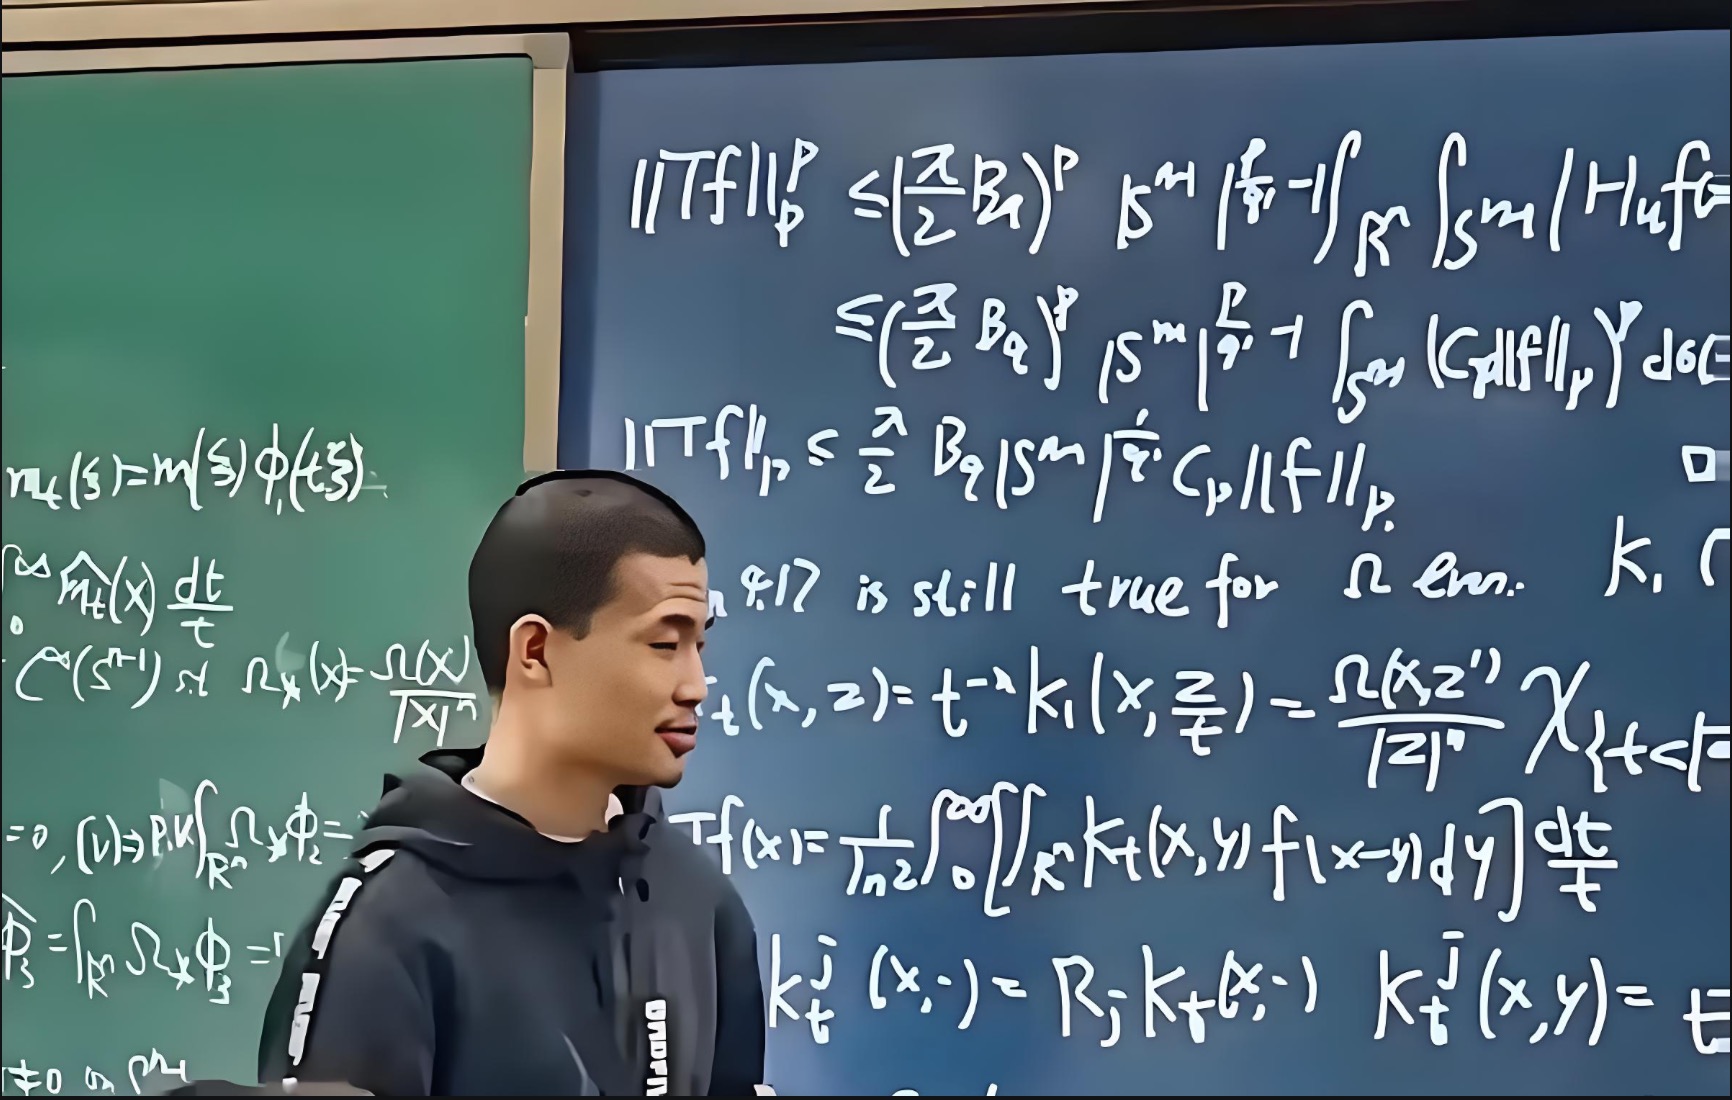 m_t(ξ)=m(ξ)ϕ(tξ)
∞ m̂_t(x) dt/t
0
C^∞(S^{n-1}) s.t Ω_*(x)=Ω(x)/|x|^n
=0, (V)⇒ P.V ∫_{R^n} Ω_* ϕ_2 =
ϕ̂_3 = ∫_{R^n} Ω_* ϕ_3 =
≠0 on
||Tf||_p^p ≤ (π/2 B_q)^p |S^{n-1}|^{p/q' -1} ∫_{R^n} ∫_{S^{n-1}} |H_u f(
≤ (π/2 B_q)^p |S^{n-1}|^{p/q' -1} ∫_{S^{n-1}} (C_p||f||_p)^p dσ(
||Tf||_p ≤ π/2 B_q |S^{n-1}|^{1/q'} C_p ||f||_p. □
4.17 is still true for Ω even. K_1 (
_t(x,z)= t^{-n} K_1(x, z/t) = Ω(x,z')/|z|^n χ_{t<|
Tf(x)= 1/ln2 ∫_0^∞ [∫_{R^n} K_t(x,y) f(x-y)dy] dt/t
K_t^j (x,·) = R_j K_t(x,·) K_t^j (x,y)= t